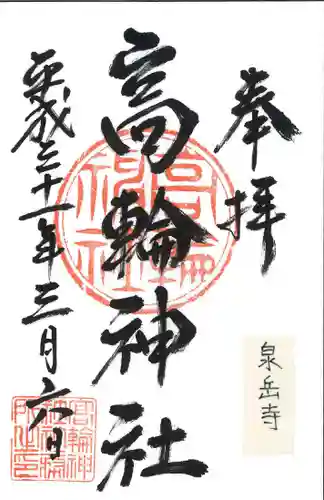 奉拝
高輪神社
平成三十一年三月六日
泉岳寺
高輪神社